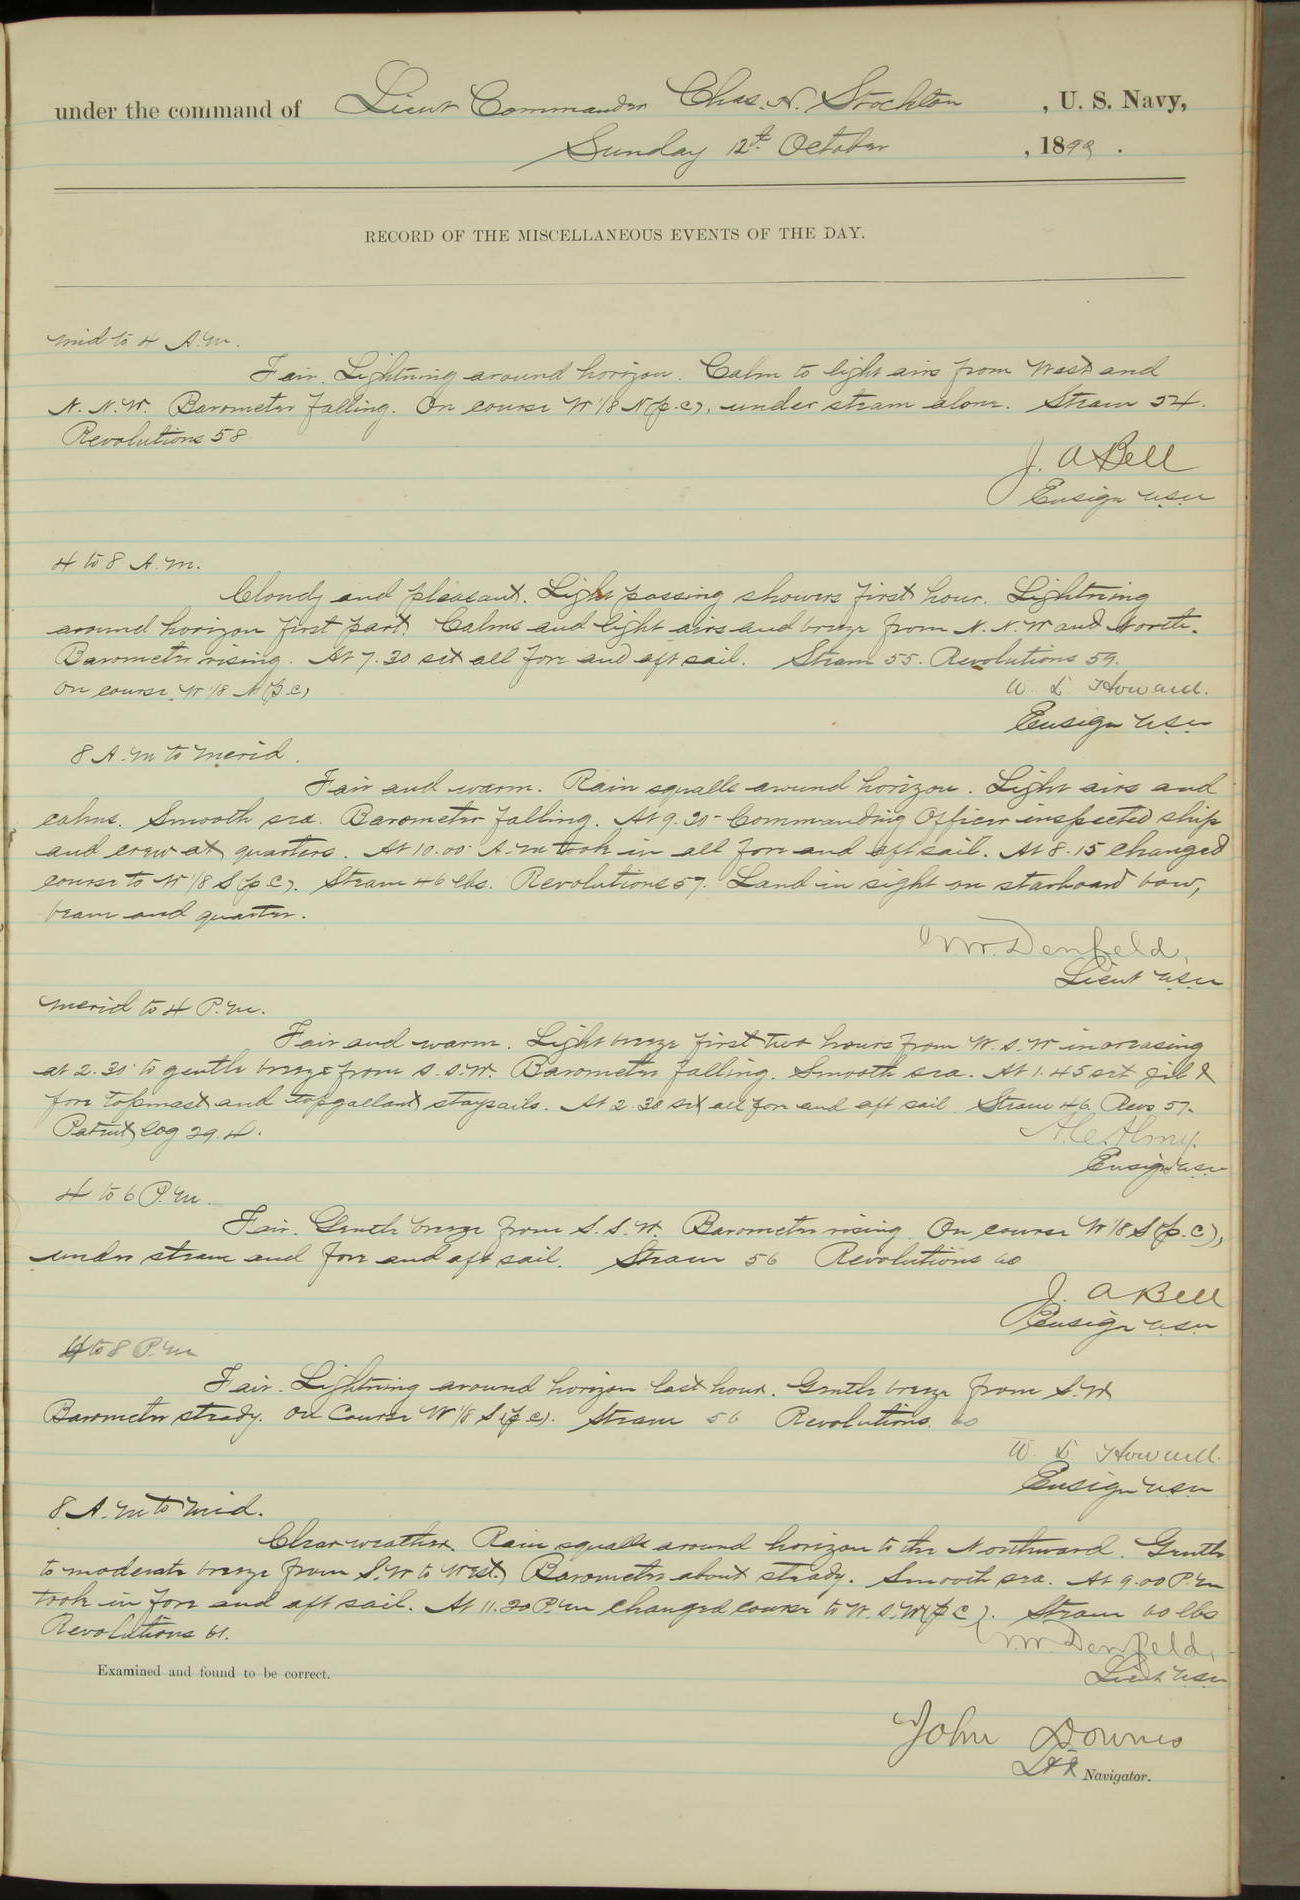 under the command of Lieut Commander Chas. H. Stockton, U. S. Navy,
Sunday 12th October, 1890.
RECORD OF THE MISCELLANEOUS EVENTS OF THE DAY.
Mid to 4 A.M.
Fair. Lightning around horizon. Calm to light airs from West and
N. N. W. Barometer falling. On course W 1/8 N (p.c), under steam alone. Steam 54.
Revolutions 58
J. A Bell
Ensign USN
4 to 8 A.M.
Cloudy and pleasant. Light passing showers first hour. Lightning
around horizon first part. Calms and light airs and breeze from N. N. W and North.
Barometer rising. At 7.30 set all fore and aft sail. Steam 55. Revolutions 59.
On course W 1/8 N (p.c)
W. L Howard.
Ensign USN
8 A.M to Merid.
Fair and warm. Rain squalls around horizon. Light airs and
calms. Smooth sea. Barometer falling. At 9.30 Commanding Officer inspected ship
and crew at quarters. At 10.00 A.M took in all fore and aft sail. At 8.15 changed
course to W 1/8 S (p c). Steam 46 lbs. Revolutions 57. Land in sight on starboard bow,
beam and quarter.
Denfeld,
Lieut USN
Merid to 4 P.M.
Fair and warm. Light breeze first two hours from W. S. W increasing
at 2.30 to gentle breeze from S. S. W. Barometer falling. Smooth sea. At 1.45 set jib &
fore topmast and topgallant staysails. At 2.30 set all fore and aft sail Steam 46. Revs 57.
Patent log 29.4.
A. C. Almy.
Ensign USN
4 to 6 P.M.
Fair. Gentle breeze from S. S. W. Barometer rising. On course W 1/8 S (p.c),
under steam and fore and aft sail. Steam 56 Revolutions 60
J. A Bell
Ensign USN
6 to 8 P.M
Fair. Lightning around horizon last hour. Gentle breeze from S. W
Barometer steady. On Course W 1/8 S (p c). Steam 56 Revolutions 60
W. L Howard.
Ensign USN
8 A.M to Mid.
Clear weather. Rain squalls around horizon to the Northward. Gentle
to moderate breeze from S. W to West. Barometer about steady. Smooth sea. At 9.00 P.M
took in fore and aft sail. At 11.20 P.M changed course to W. S. W (p c). Steam 60 lbs
Revolutions 61.
Denfeld,
Lieut USN
Examined and found to be correct.
John Downes
Navigator.